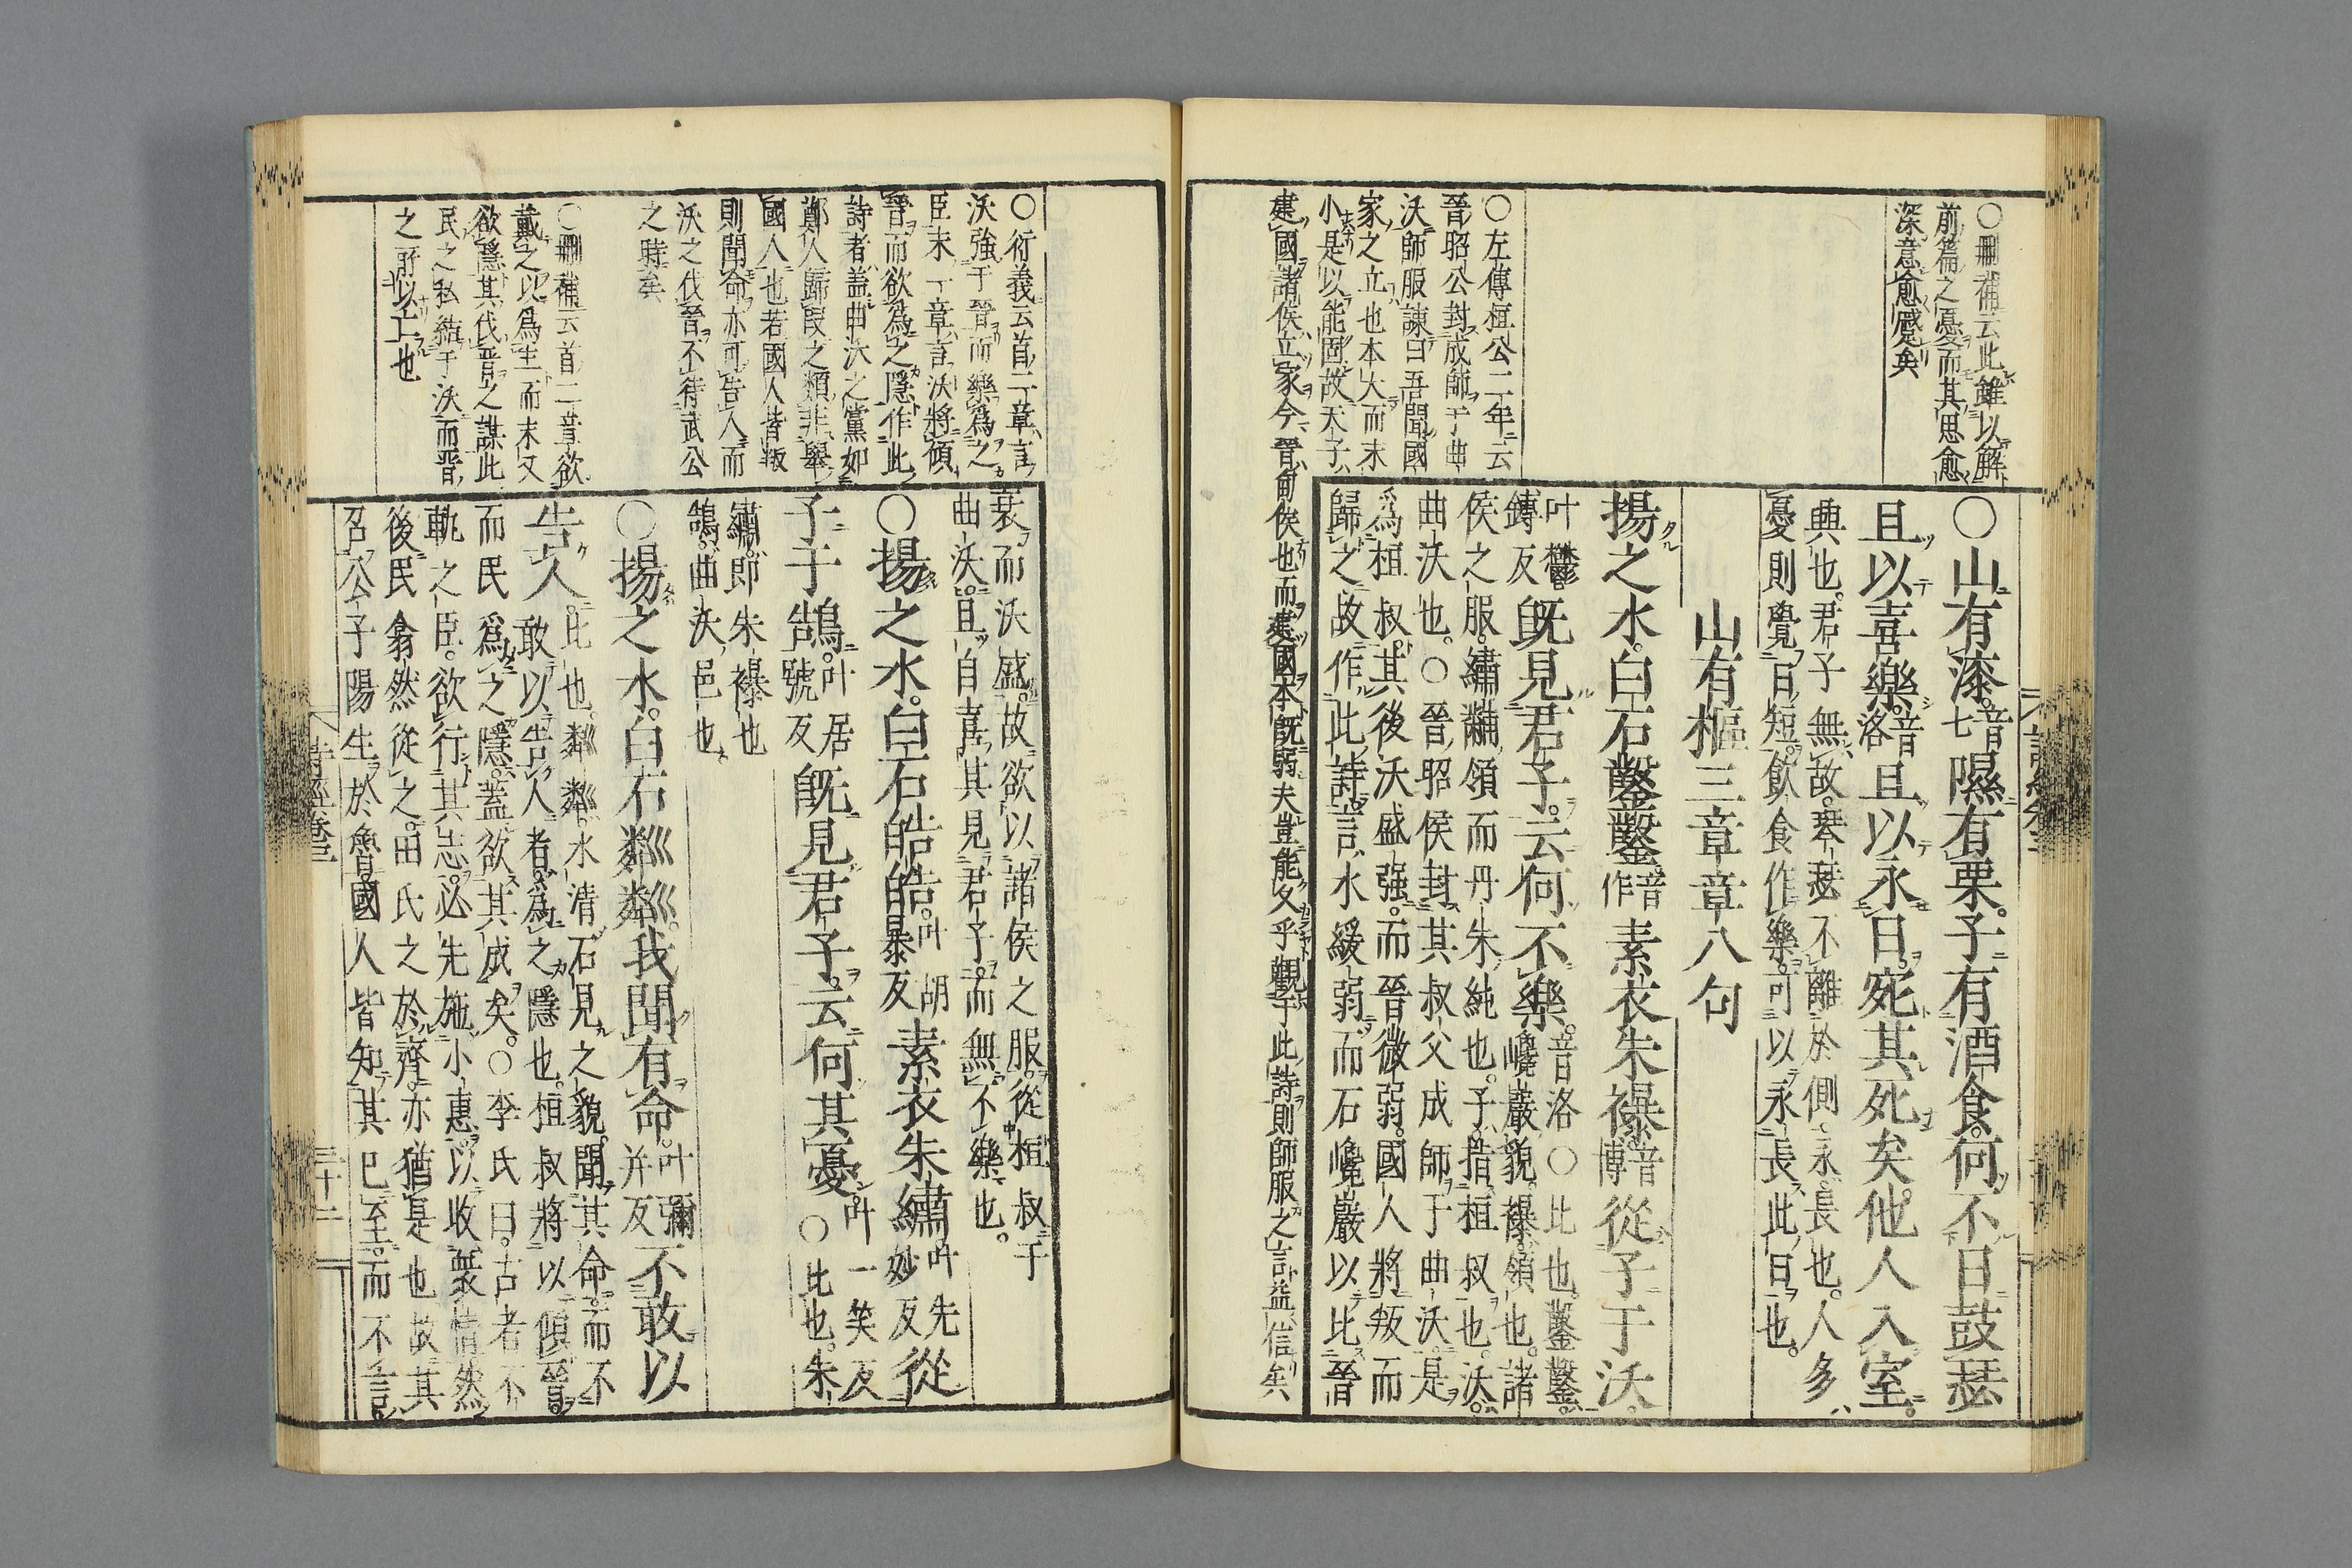 ○刪補云此雖以解
前篇之憂而其思愈
深意愈蹙矣
○左傳桓公二年云
晉昭公封成師于曲
沃師服諫曰吾聞國
家之立也本大而末
小是以能固故天子
建國諸侯立家今晉甸侯也而建國本既弱矣豈能久乎觀于此詩則師服之言益信矣
○山有漆音七隰有栗。子有酒食。何不日鼓瑟
且以喜樂音洛且以永日。宛其死矣。他人入室。
興也。君子無故。琴瑟不離於側。永長也。人多
憂則覺日短。飲食作樂。可以永長此日也。
山有樞三章章八句
揚之水。白石鑿鑿音作素衣朱襮音博從子于沃。
叶鬱鏄反既見君子。云何不樂。音洛○比也。鑿鑿。
巉巖貌。襮。領也。諸
侯之服。繡黼領而丹朱純也。子。指桓叔也。沃。
曲沃也。○晉昭侯封其叔父成師于曲沃。是
爲桓叔。其後沃盛强。而晉微弱。國人將叛而
歸之。故作此詩。言水緩弱。而石巉巖以比晉
衰而沃盛。故欲以諸侯之服。從桓叔于
曲沃。且自喜其見君子。而無不樂也。
○揚之水。白石皓皓。叶胡暴反素衣朱繡。叶先妙反從
子于鵠。叶居號反既見君子。云何其憂。叶一笑反○比也。朱
繡。即朱襮也
鵠。曲沃邑也
○揚之水。白石粼粼。我聞有命。叶彌并反不敢以
告人。比也。粼粼。水清石見之貌。聞其命。而不
敢以告人者。爲之隱也。桓叔將以傾晉。
而民爲之隱。蓋欲其成矣。○李氏曰。古者不
軌之臣。欲行其志。必先施小惠。以收衆情。然
後民翕然從之。田氏之於齊。亦猶是也。故其
召公子陽生於魯。國人皆知其已至。而不言。
○衍義云首二章言
沃強于晉而樂爲之
臣末一章言沃將傾
晉而欲爲之隱作此
詩者盖曲沃之黨如
鄭人歸段之類非舉
國人也若國人皆叛
則聞命亦可告人而
沃之伐晉不待武公
之時矣
○刪補云首二章欲
戴之以爲主而末又
欲隱其伐晉之謀此
民之私結于沃而晉
之所以亡也
詩經卷三
三十二